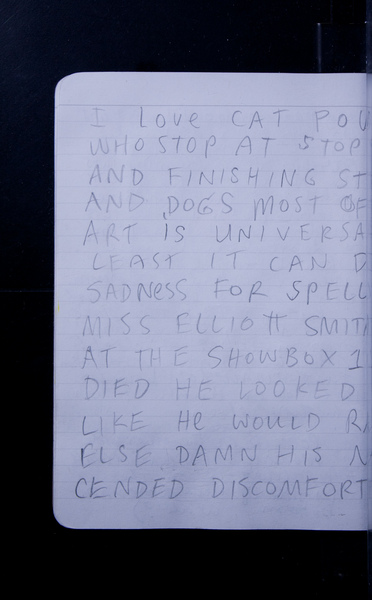 I Love CAT POW
WHO STOP AT STOP
AND FINISHING ST
AND DOGS MOST OF
ART IS UNIVERSA
LEAST IT CAN D
SADNESS FOR SPELL
MISS ELLIOTT SMIT
AT THE SHOWBOX 1
DIED HE LOOKED
LIKE He WOULD RA
ELSE DAMN HIS N
CENDED DISCOMFORT